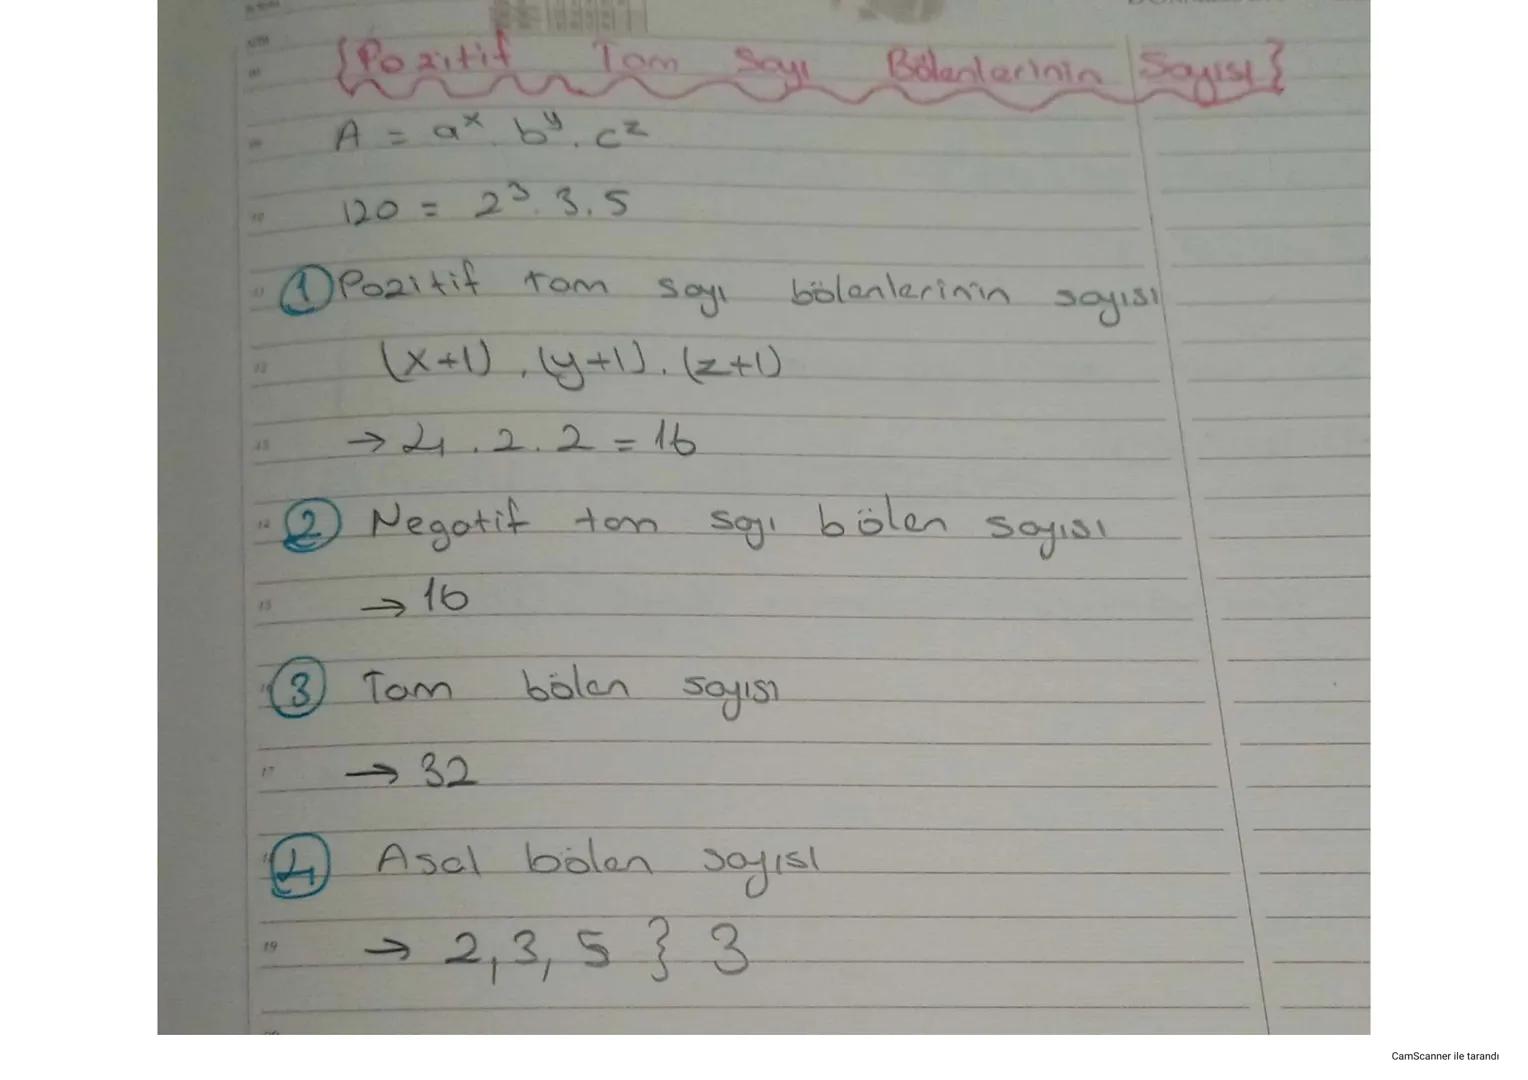 {Pozitif Tam Sayı Bölenlerinin Sayısı}
A = a^x . b^y . c^z
120 = 2^3 . 3 . 5
1 Pozitif tam sayı bölenlerinin sayısı
(x+1) . (y+1) . (z+1)
→ 4 . 2 . 2 = 16
2 Negatif tam sayı bölen sayısı
→ 16
3 Tam bölen sayısı
→ 32
4 Asal bölen sayısı
→ 2, 3, 5 } 3
CamScanner ile tarandı